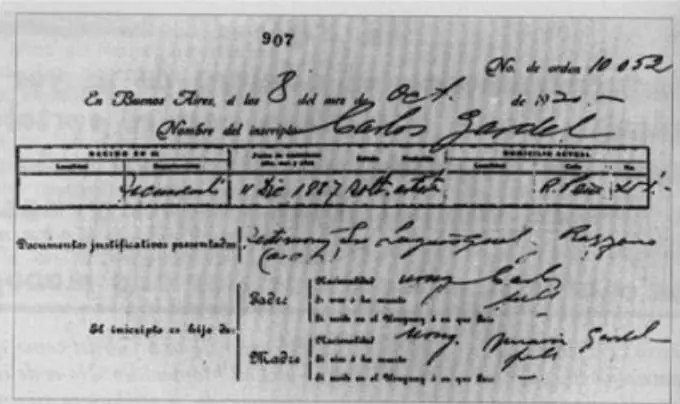 907
No. de orden 10.052
En Buenos Aires, á los 8 del mes de Oct. de 1920.-
Nombre del inscripto Carlos Gardel
NACIDO EN EL DOMICILIO ACTUAL
Localidad Departamento Fecha de nacimiento día, mes y año Estado Profesión Localidad Calle No.
11 Dic 1887 Solt. artista R. Peña
Documentos justificativos presentados Razzano
Nacionalidad urug Carlos
Padre Si vive ó ha muerto fall
Si reside en el Uruguay ó en que País —
El inscripto es hijo de:
Nacionalidad urug. María Gardel
Madre Si vive ó ha muerto fall
Si reside en el Uruguay ó en que País —